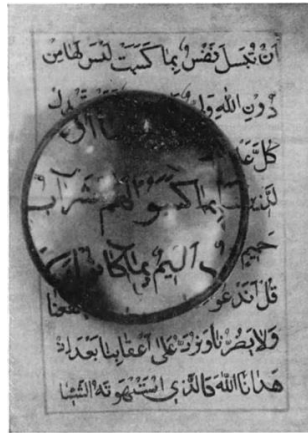 اَنْ تُبْسَلَ نَفْسٌ بِمَا كَسَبَتْ لَيْسَ لَهَا مِن
دُونِ اللهِ
كُلَّ
بِمَا كَسَبُوا لَهُمْ شَرَابٌ
حَمِيمٍ اَلِيمٌ بِمَا كَانُوا
قُلْ اَنَدْعُو
وَلَا يَضُرُّنَا وَنُرَدُّ عَلَى اَعْقَابِنَا بَعْدَ اِذْ
هَدَانَا اللهُ كَالَّذِي اسْتَهْوَتْهُ الشَّيَا